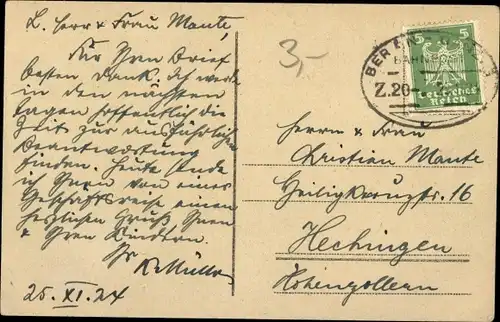 L. Herr & Frau Mante,
Für Ihren Brief
besten Dank. Ich werde
in den nächsten
Tagen hoffentlich die
Zeit zur ausführlichen
Beantwortung
finden. Heute sende
ich Ihnen von einer
Geschäftsreise einen
herzlichen Gruß Ihnen
& Ihren Kindern.
Ihr
K. Müller
25. XI. 24
3,-
BAHNPOST
Z.20
5 5
Deutsches
Reich
Herrn & Frau
Christian Mante
Heiligkreuzstr. 16
Hechingen
Hohenzollern